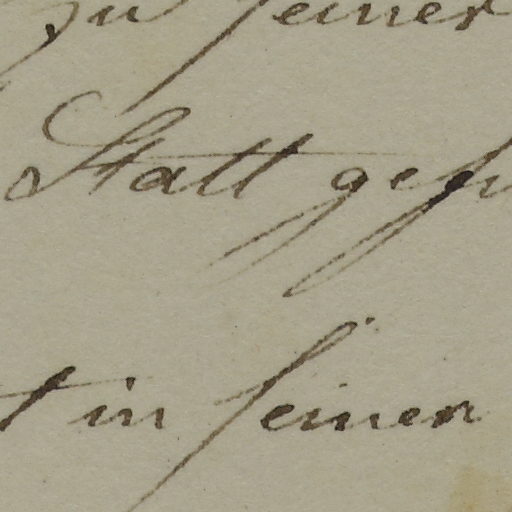 zu seiner
Statt gefu
t in seinen